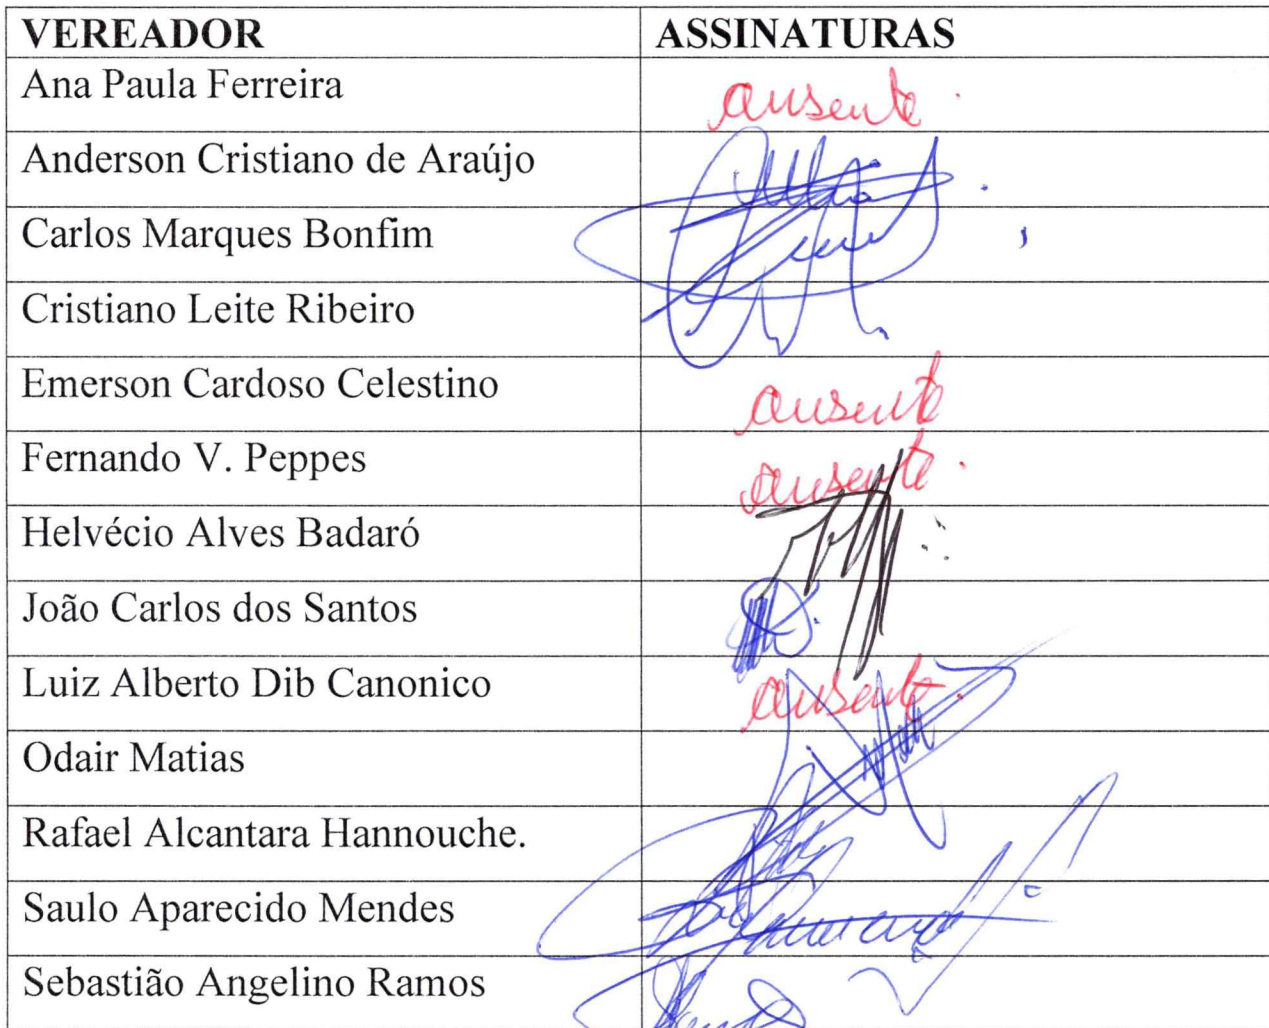 VEREADOR ASSINATURAS
Ana Paula Ferreira ausente.
Anderson Cristiano de Araújo
Carlos Marques Bonfim
Cristiano Leite Ribeiro
Emerson Cardoso Celestino ausente
Fernando V. Peppes ausente.
Helvécio Alves Badaró
João Carlos dos Santos
Luiz Alberto Dib Canonico ausente.
Odair Matias
Rafael Alcantara Hannouche.
Saulo Aparecido Mendes
Sebastião Angelino Ramos